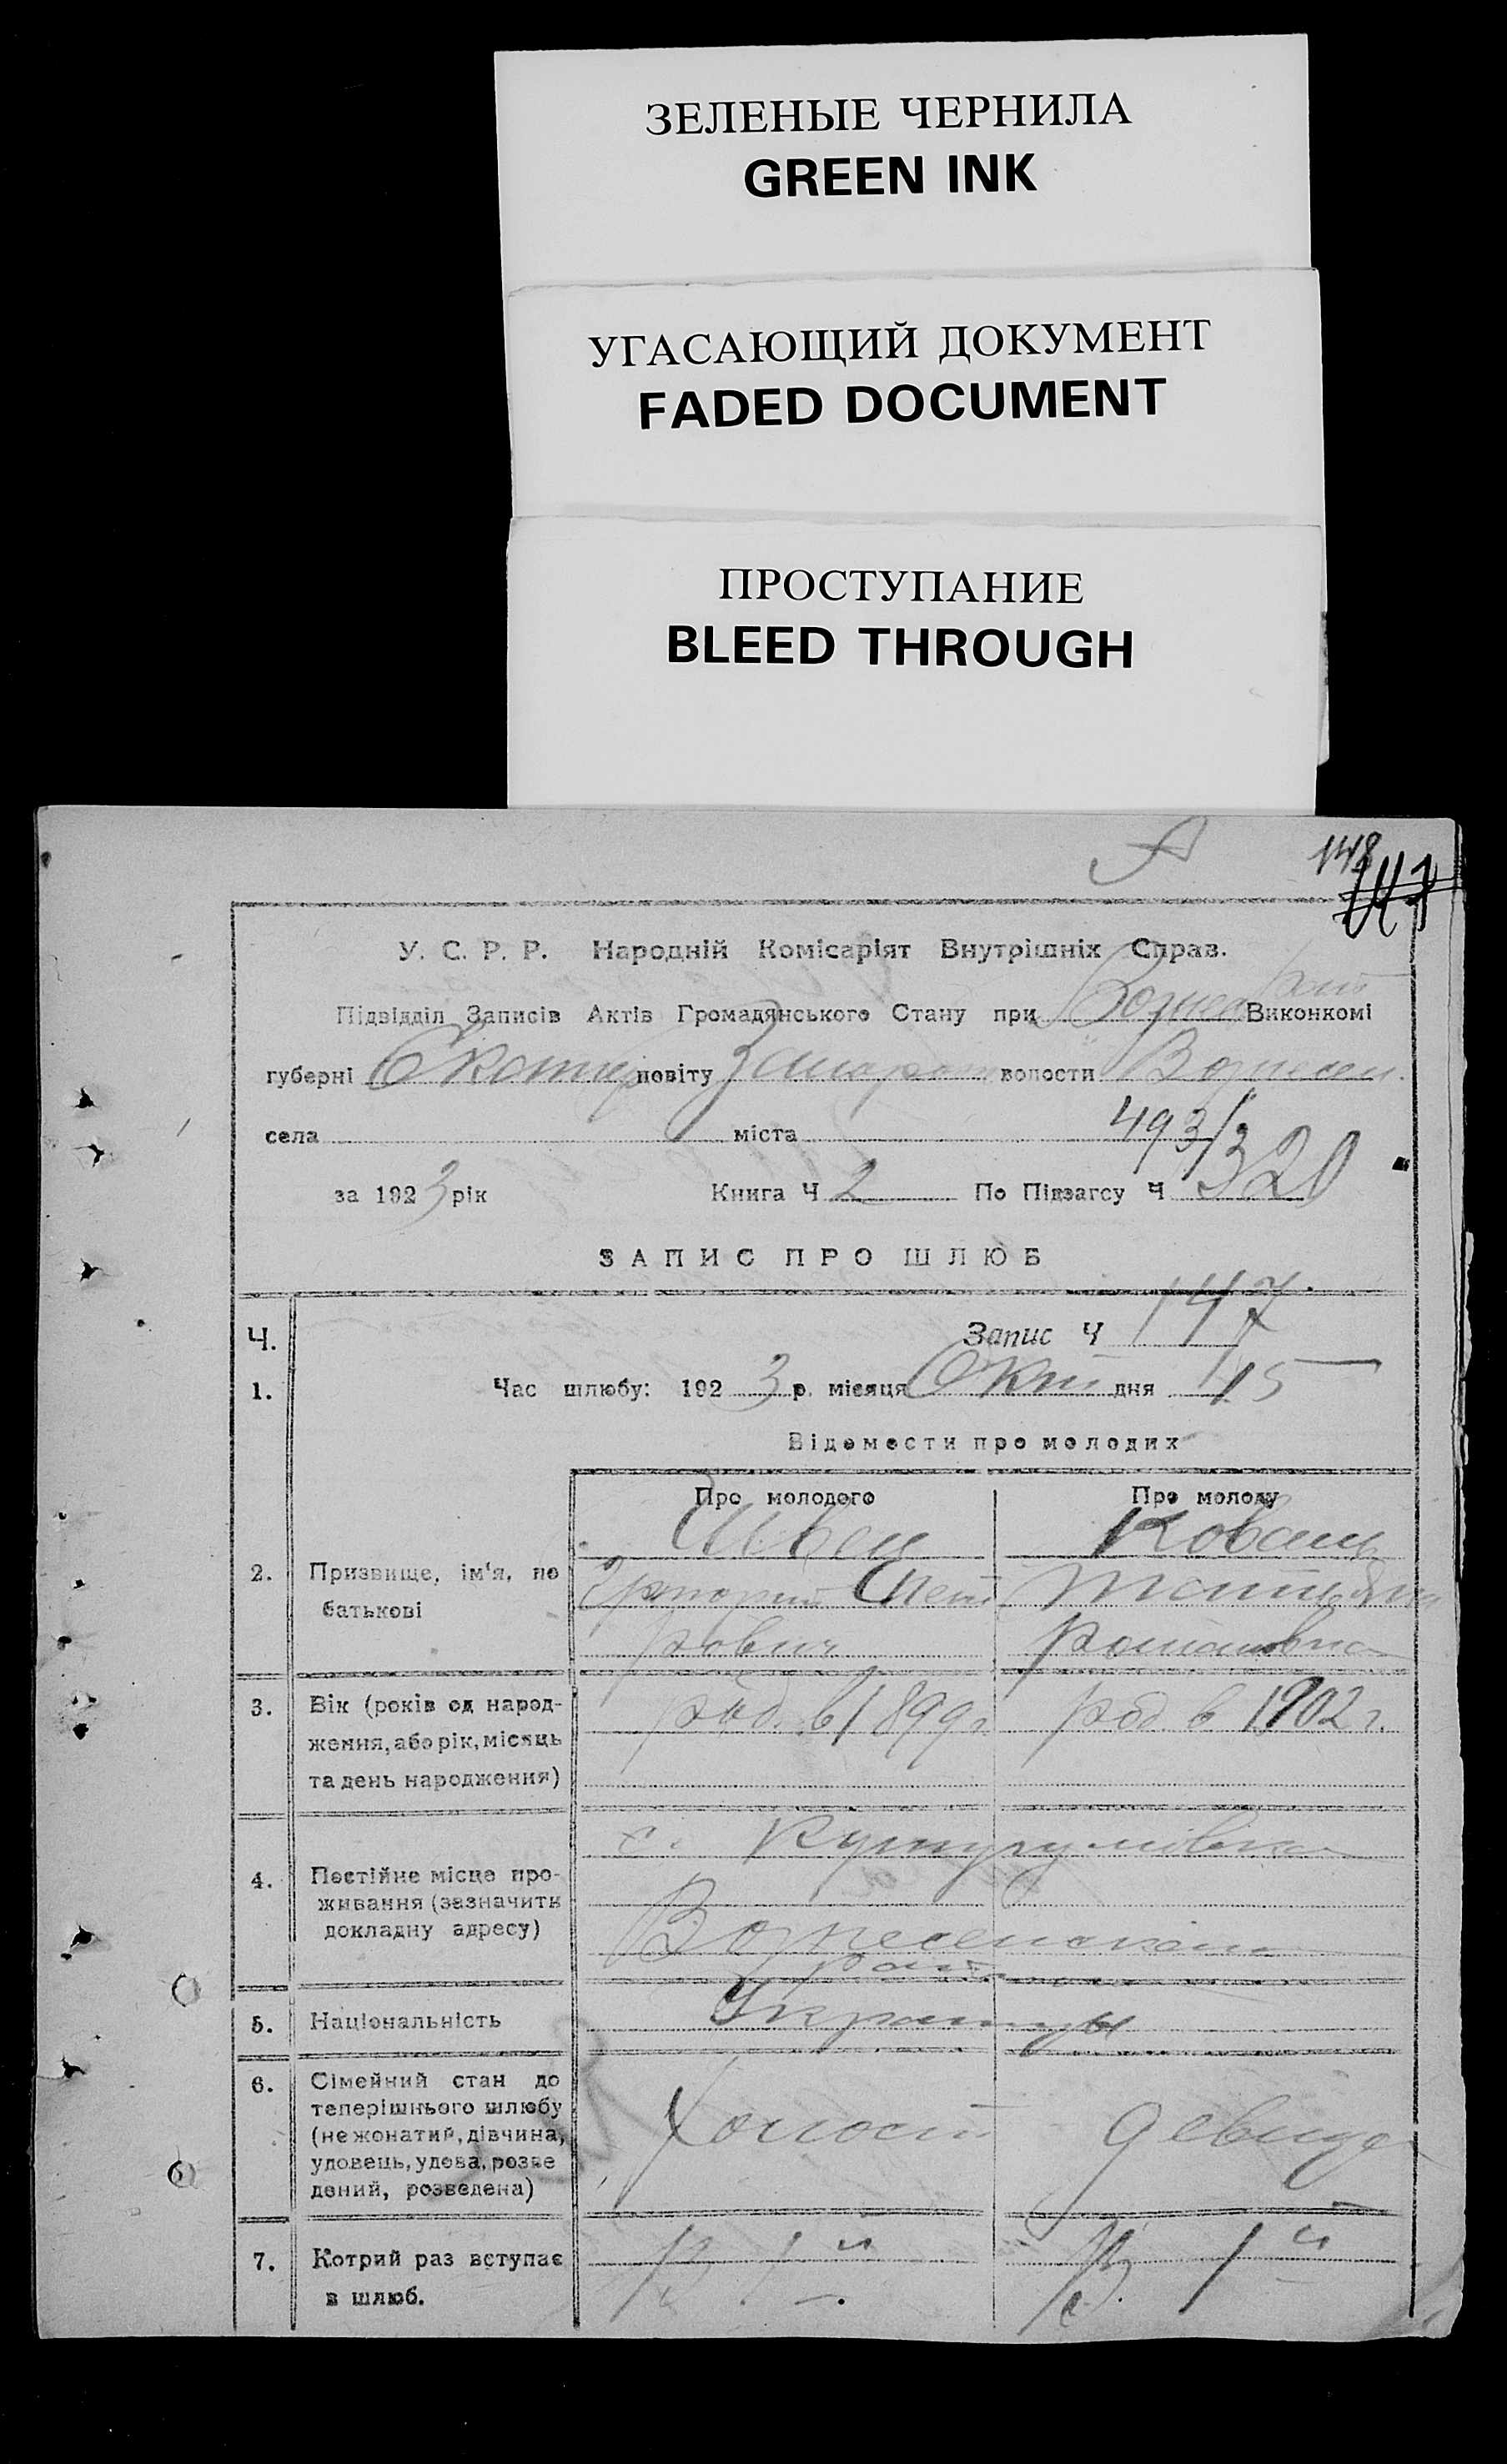 ЗЕЛЕНЫЕ ЧЕРНИЛА
GREEN INK
УГАСАЮЩИЙ ДОКУМЕНТ
FADED DOCUMENT
ПРОСТУПАНИЕ
BLEED THROUGH
148
У. С. Р. Р. Народній Комісаріят Внутрішніх Справ.
Підвідділ Записів Актів Громадянського Стану при Виконкомі
губерні повіту волости
села міста 493/
за 1923 рік Книга Ч 2 По Підзагсу Ч 320
ЗАПИС ПРО ШЛЮБ
Ч. Запис Ч 147
1. Час шлюбу: 1923 р. місяця Окт дня 15
Відомости про молодих
Про молодого Про молоду
Швец Коваль
2. Призвище, ім'я, по
батькові
Григорий Пет
рович Романовна
3. Вік (років од народ-
ження, або рік, місяць
та день народження)
род. в 1899 г род в 1902 г.
4. Постійне місце про-
живання (зазначити
докладну адресу)
с.
Вознесенского
5. Національність Украинцы
6. Сімейний стан до
теперішнього шлюбу
(не жонатий, дівчина,
удовець, удова, розве
дений, розведена)
Холост девица
7. Котрий раз вступає
в шлюб.
В 1й В 1й